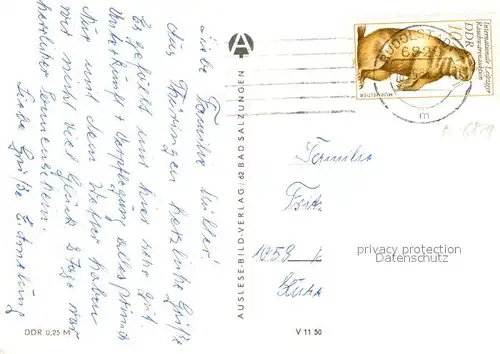 Liebe Familie Müller!
Aus Thüringen herzliche Grüße
Es gefällt uns hier sehr gut.
Unterkunft + Verpflegung alles prima
Nur mit dem Wetter haben
wir nicht viel Glück 2 Tage war
herrlicher Sonnenschein.
Liebe Grüße E.
DDR 0,25 M
A
AUSLESE-BILD-VERLAG / 62 BAD SALZUNGEN
V 11 50
Internationale Leipziger
Rauchwarenauktion
DDR
10
MURMELTIER
RUDOLSTADT
m
Familie
Fritz
1058
privacy protection
Datenschutz